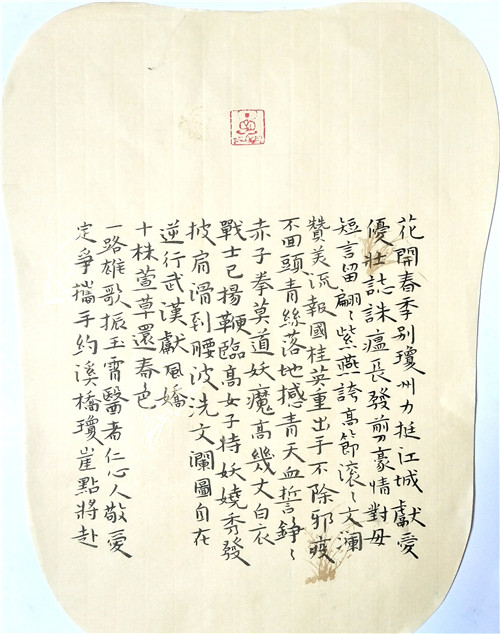 花開春季別瓊州力挺江城獻愛
優壯誌誅瘟長發剪豪情對毋
短言留翩〻紫燕誇高節滾〻文瀾
贊美流報國桂英重出手不除邪疫
不回頭青絲落地撼青天血誓錚〻
赤子拳莫道妖魔高幾丈白衣
戰士已揚鞭臨高女子特妖嬈秀發
披肩滑到腰波洗文瀾圖自在
逆行武漢獻風嬌
十株萱草還春色
一路雄歌振玉霄醫者仁心人敬愛
定爭攜手約溪橋瓊崖點將赴